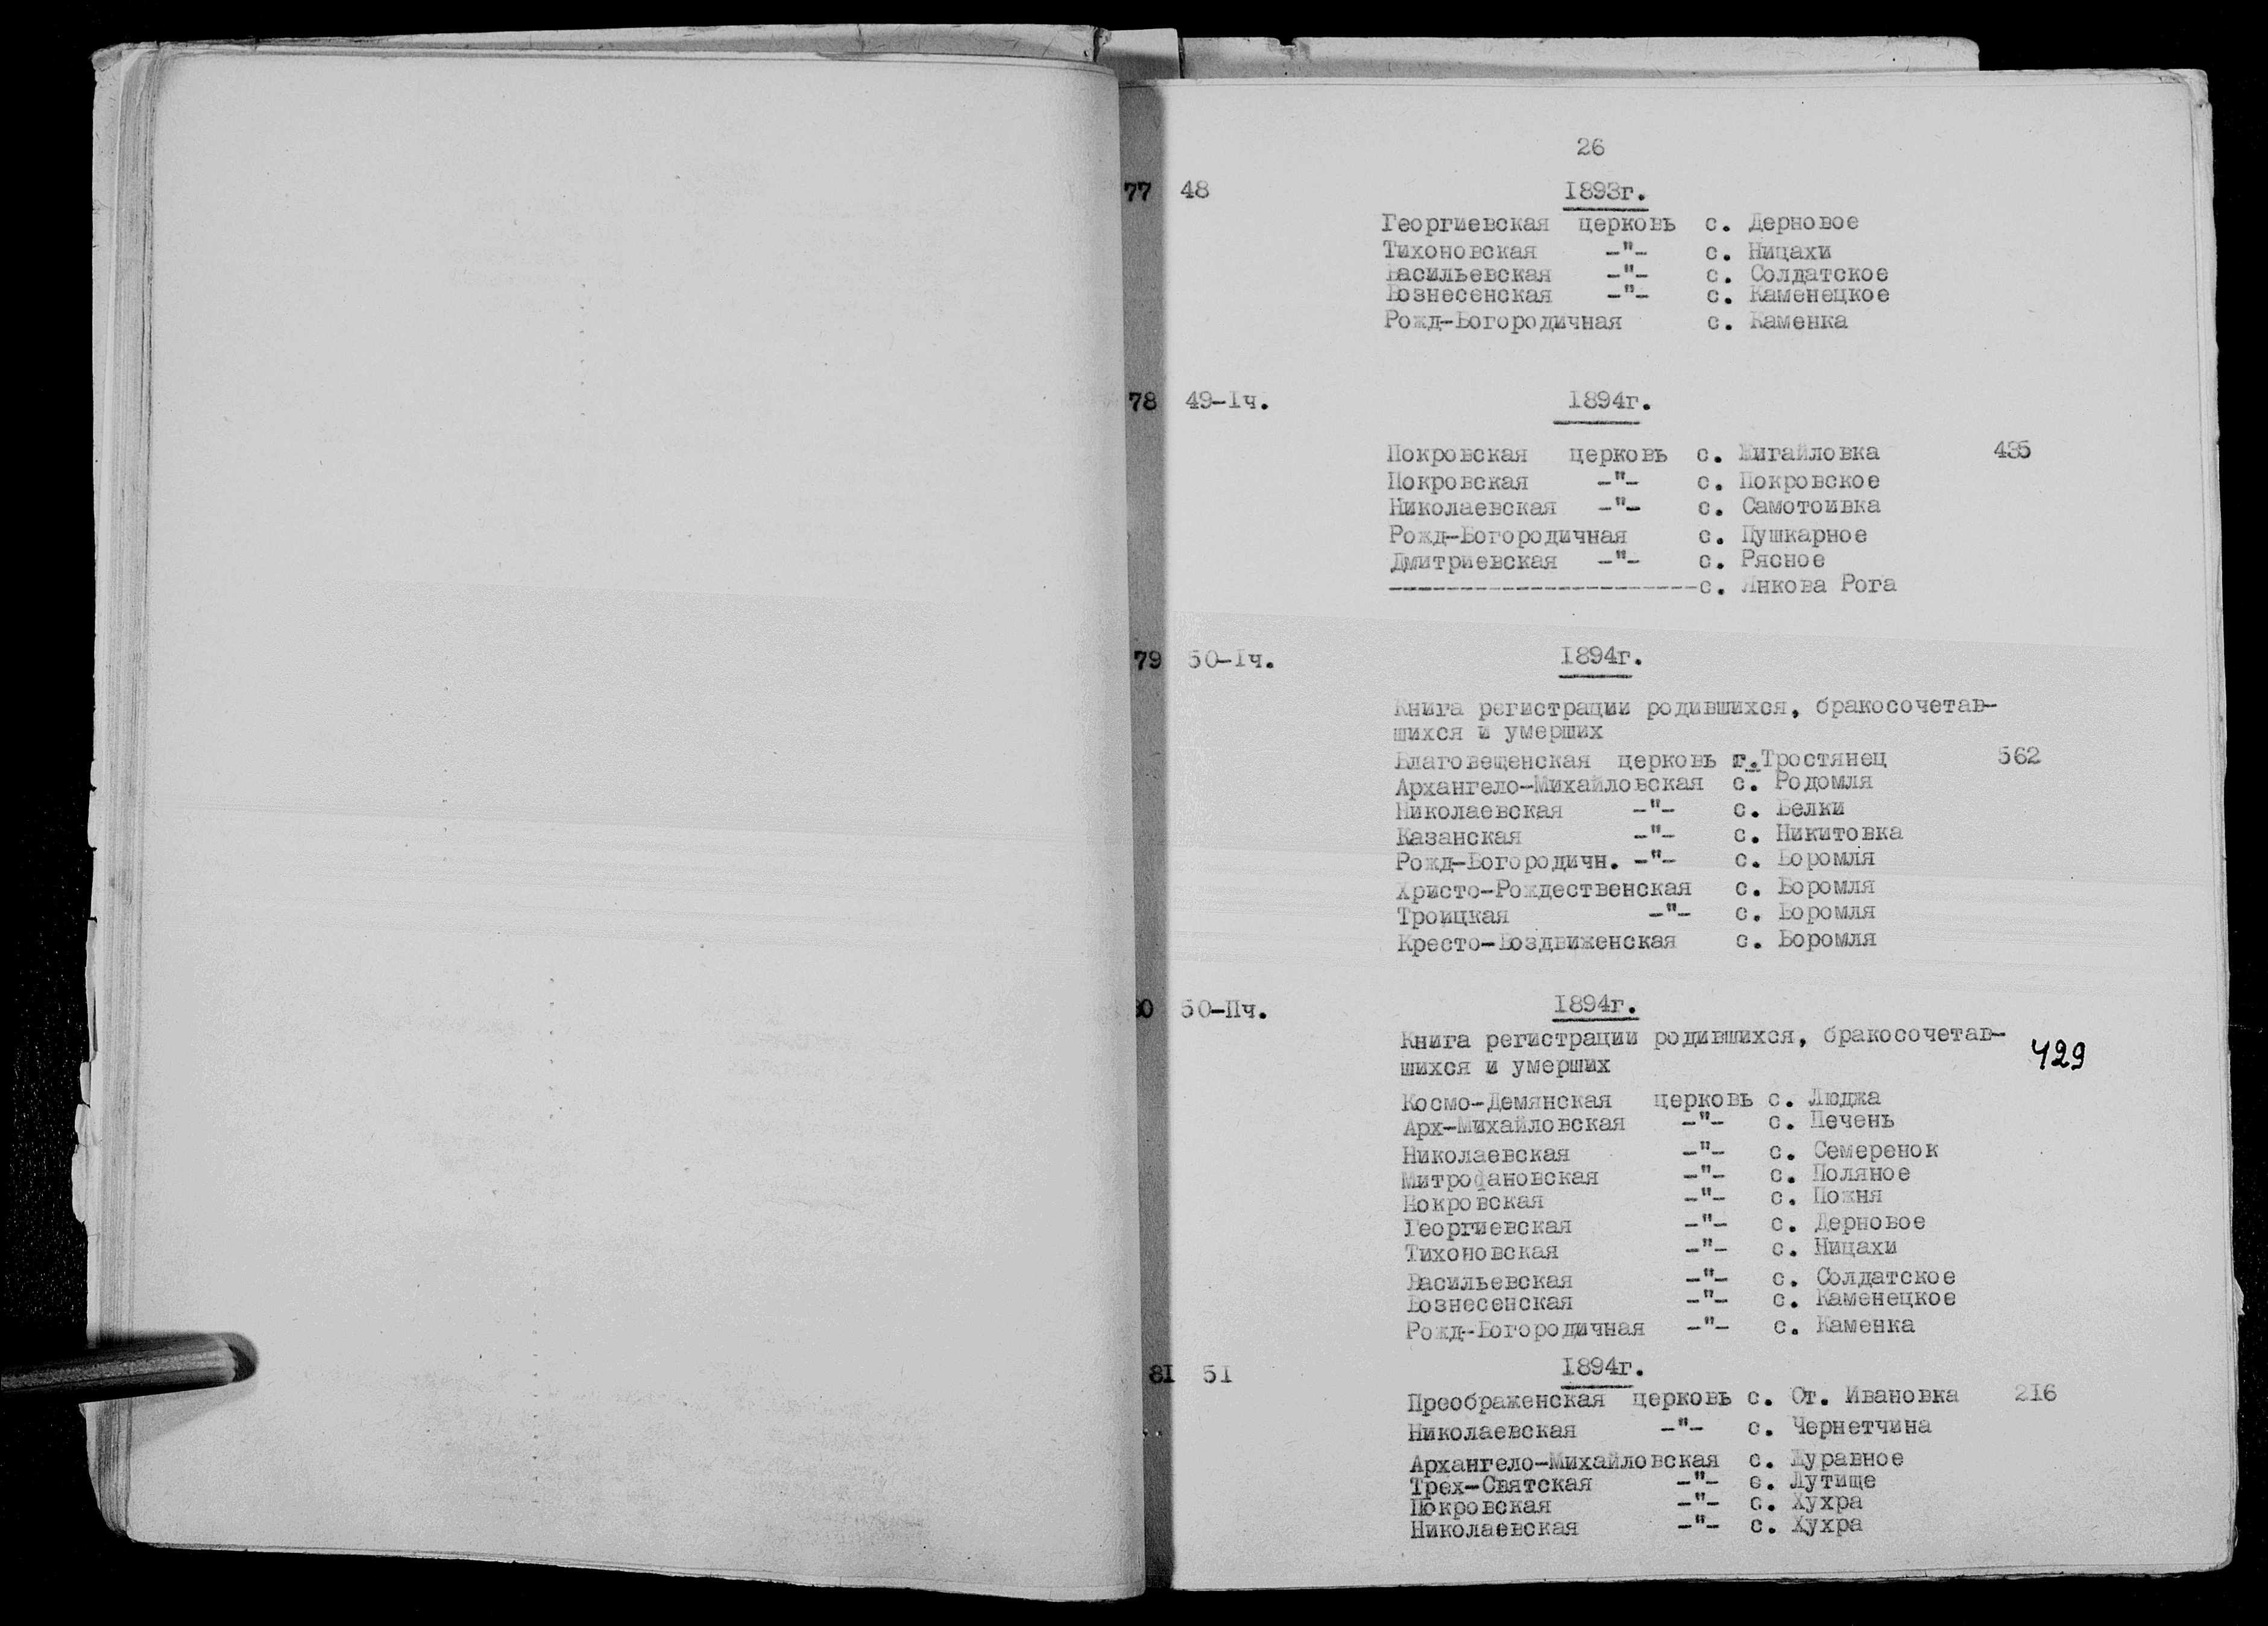 26
77 48 1893г.
Георгиевская церковь с. Дерновое
Тихоновская -"- с. Ницахи
Васильевская -"- с. Солдатское
Вознесенская -"- с. Каменецкое
Рожд-Богородичная с. Каменка
78 49-Iч. 1894г.
Покровская церковь с. Жигайловка 435
Покровская -"- с. Покровское
Николаевская -"- с. Самотоивка
Рожд-Богородичная с. Пушкарное
Дмитриевская -"- с. Рясное
----------------------с. Янкова Рога
79 50-Iч. 1894г.
Книга регистрации родившихся, бракосочетав-
шихся и умерших
Благовещенская церковь г.Тростянец 562
Архангело-Михайловская с. Родомля
Николаевская -"- с. Белки
Казанская -"- с. Никитовка
Рожд-Богородичн. -"- с. Боромля
Христо-Рождественская с. Боромля
Троицкая -"- с. Боромля
Кресто-Воздвиженская с. Боромля
80 50-Пч. 1894г.
Книга регистрации родившихся, бракосочетав-
шихся и умерших 429
Космо-Демянская церковь с. Люджа
Арх-Михайловская -"- с. Печень
Николаевская -"- с. Семеренок
Митрофановская -"- с. Поляное
Покровская -"- с. Пожня
Георгиевская -"- с. Дерновое
Тихоновская -"- с. Ницахи
Васильевская -"- с. Солдатское
Вознесенская -"- с. Каменецкое
Рожд-Богородичная -"- с. Каменка
81 51 1894г.
Преображенская церковь с. Ст. Ивановка 216
Николаевская -"- с. Чернетчина
Архангело-Михайловская с. Журавное
Трех-Святская -"- с. Лутище
Покровская -"- с. Хухра
Николаевская -"- с. Хухра